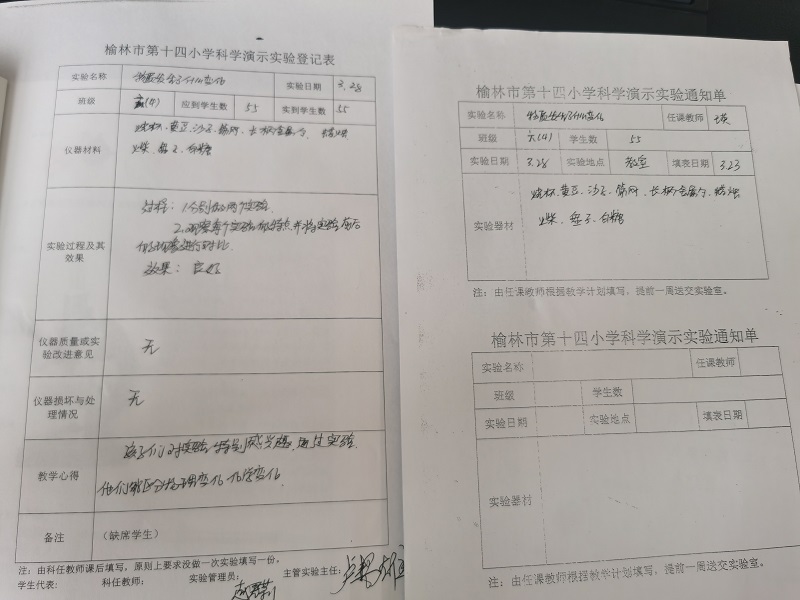 榆林市第十四小学科学演示实验登记表
实验名称 物质发生了什么变化 实验日期 3.28
班级 六(4) 应到学生数 55 实到学生数 55
仪器材料 烧杯、黄豆、沙子、筛网、长柄金属勺、蜡烛
火柴、盘子、白糖
实验过程及其效果 过程：1.分别做两个实验.
2.观察每个实验的特点,并将实验前后
的物质进行对比.
效果：良好
仪器质量或实验改进意见 无
仪器损坏与处理情况 无
教学心得 孩子们对实验特别感兴趣,通过实验.
他们能区分物理变化化学变化
备注 （缺席学生）
注：由科任教师课后填写，原则上要求没做一次实验填写一份。
学生代表： 科任教师： 实验管理员： 主管实验主任：
榆林市第十四小学科学演示实验通知单
实验名称 物质发生了什么变化 任课教师
班级 六(4) 学生数 55
实验日期 3.28 实验地点 教室 填表日期 3.23
实验器材 烧杯、黄豆、沙子、筛网、长柄金属勺、蜡烛
火柴、盘子、白糖
注：由任课教师根据教学计划填写，提前一周送交实验室。
榆林市第十四小学科学演示实验通知单
实验名称 任课教师
班级 学生数
实验日期 实验地点 填表日期
实验器材
注：由任课教师根据教学计划填写，提前一周送交实验室。